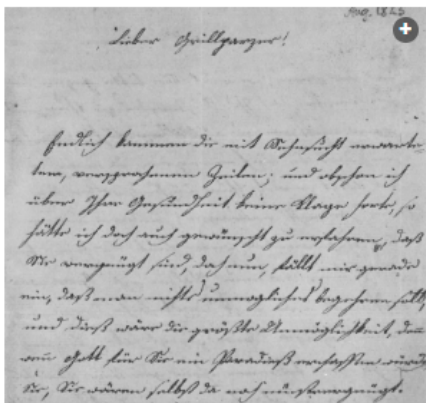 Aug. 1823
Lieber Grillparzer!
Endlich kammen die mit Sehnsucht erwarte-
ten, versprochenen Zeilen; und obschon ich
über Ihre Gesundheit keine Klage hörte, so
hätte ich doch auch gewünscht zu erfahren, daß
Sie vergnügt sind, doch nun, fällt mir gerade
ein, daß man nichts unmögliches begehren soll,
und dieß wäre die größte Unmöglichkeit, denn
wenn Gott für Sie ein Paradieß erschaffen würde
Sie, Sie wären selbst da noch mißvergnügt.